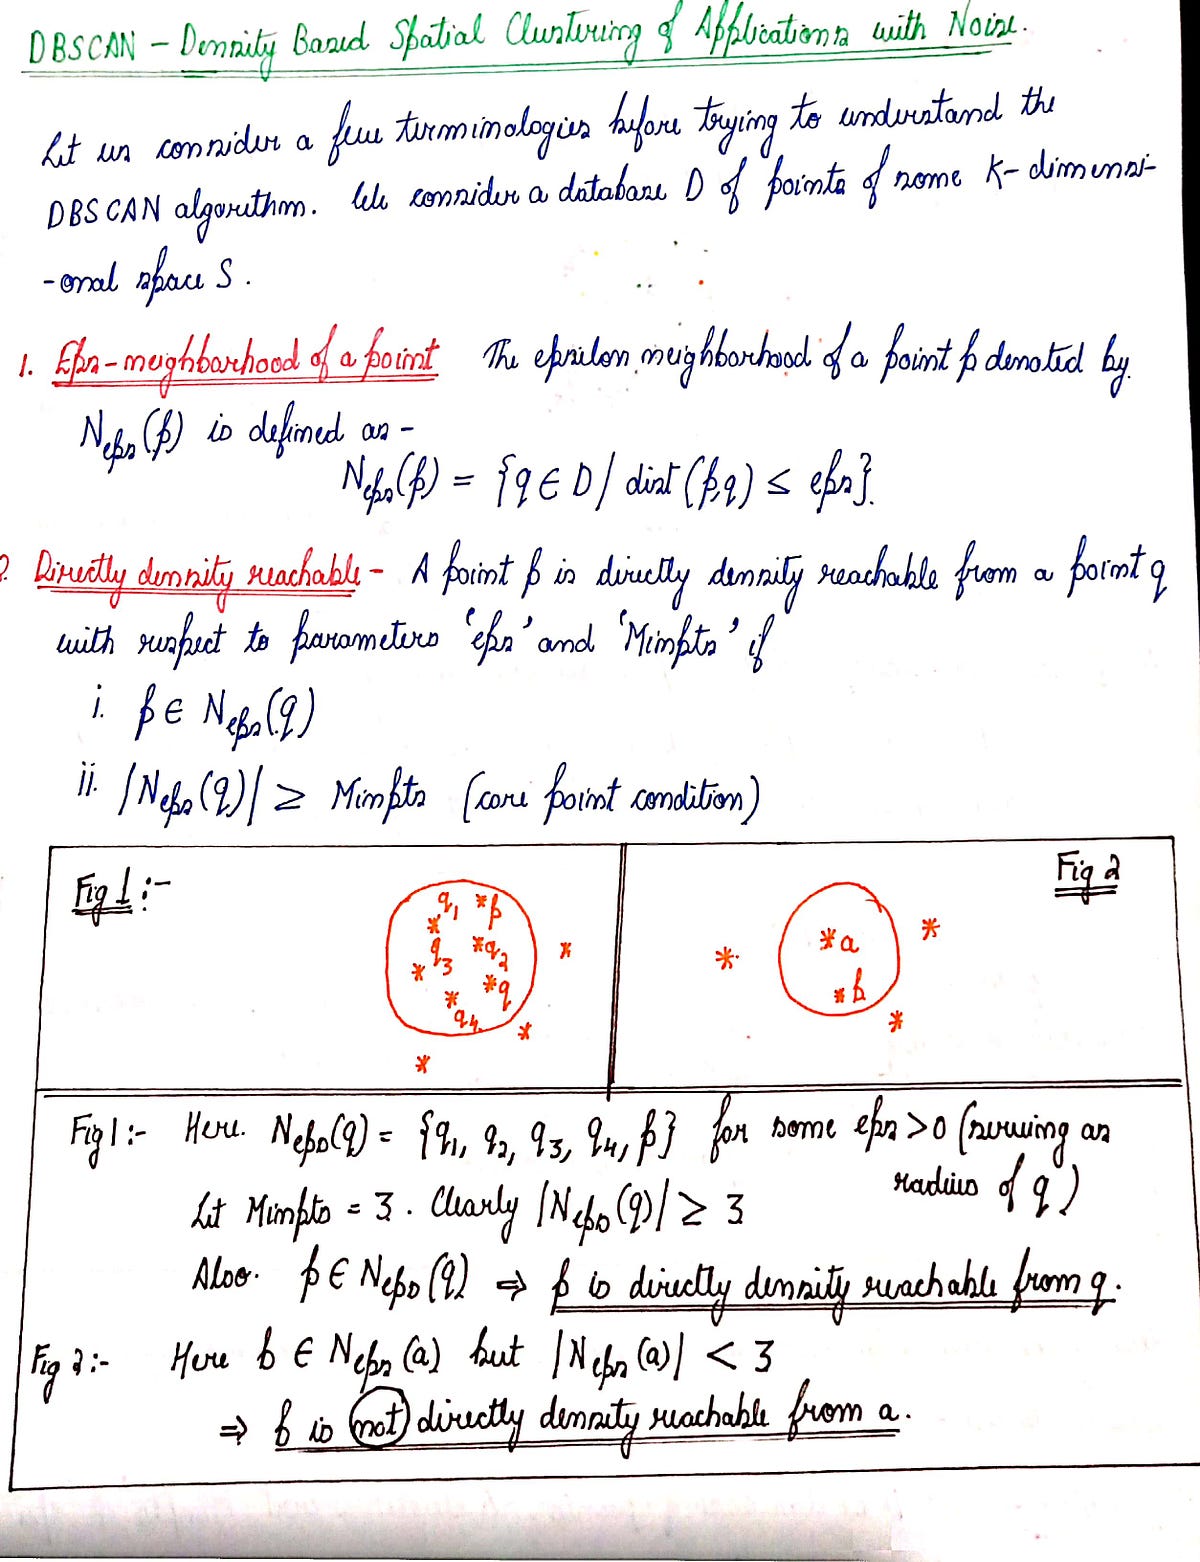 DBSCAN – Density Based Spatial Clustering of Applications with Noise.
Let us consider a few terminologies before trying to understand the
DBSCAN algorithm. We consider a database D of points of some K-dimensi-
-onal space S.
1. Eps-neighborhood of a point The epsilon neighborhood of a point p denoted by
Neps(p) is defined as -
Neps(p) = {q ∈ D / dist (p,q) ≤ eps}.
2. Directly density reachable - A point p is directly density reachable from a point q
with respect to parameters 'eps' and 'Minpts' if
i. p ∈ Neps(q)
ii. |Neps(q)| ≥ Minpts (core point condition)
Fig 1 :-
q1 * p
*
q3 *q2
* *q
*
q4
*
*
*
Fig 2
* a
* b
*
*
*
Fig 1 :- Here. Neps(q) = {q1, q2, q3, q4, p} for some eps > 0 (serving as
radius of q)
Let Minpts = 3. Clearly |Neps(q)| ≥ 3
Also. p ∈ Neps(q) ⇒ p is directly density reachable from q.
Fig 2 :- Here b ∈ Neps(a) but |Neps(a)| < 3
⇒ b is not directly density reachable from a.